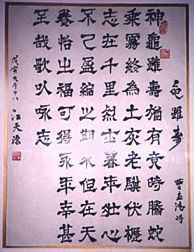 龜雖壽
曹孟德詩
神龜雖壽猶有竟時騰蛇
乘霧終為土灰老驥伏櫪
志在千里烈士暮年壯心
不已盈縮之期不但在天
養怡之福可得永年幸甚
至哉歌以詠志
戊寅
江天